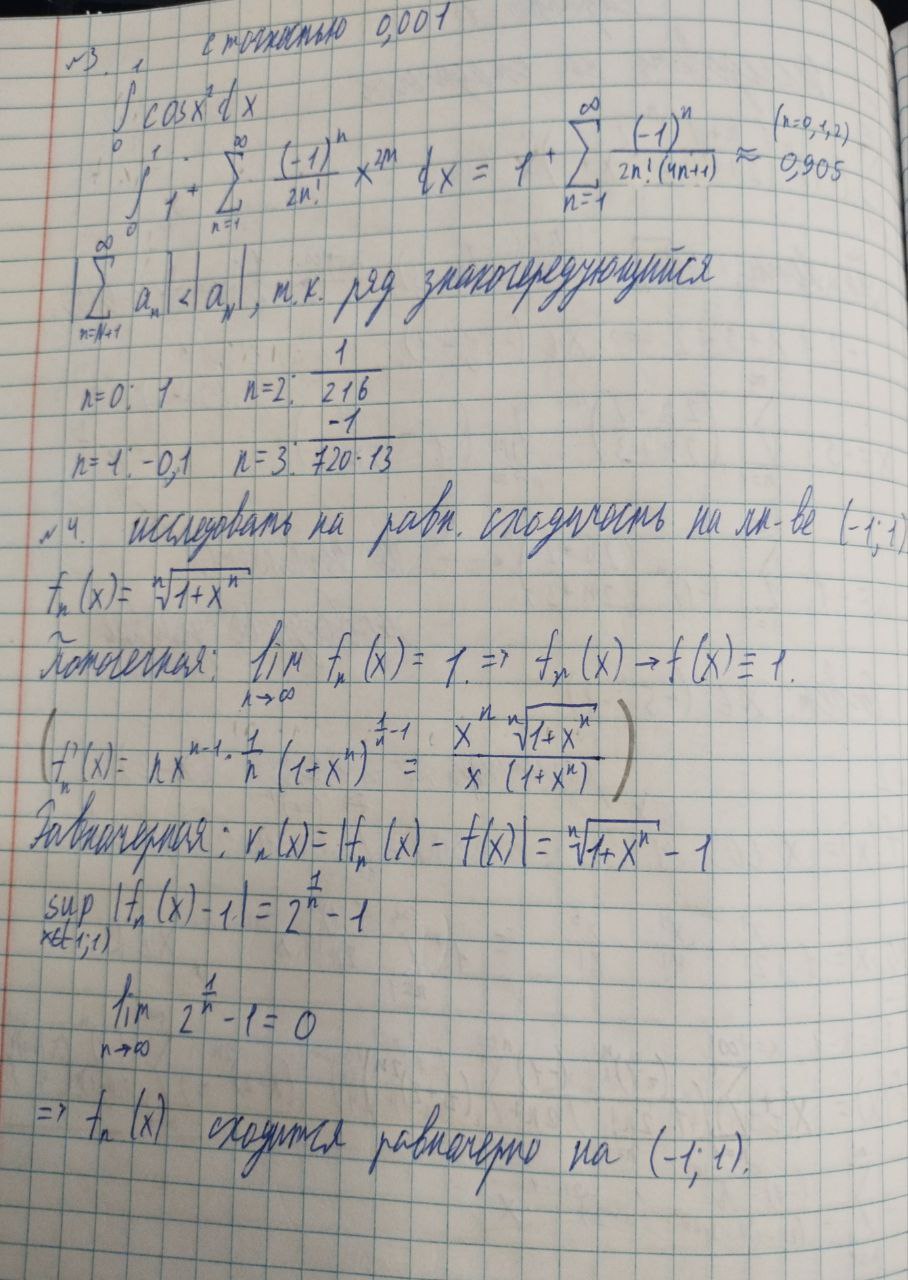 №3. с точностью 0,001
∫₀¹ cos x² dx
∫₀¹ 1 + ∑_{n=1}^{∞} (-1)ⁿ/2n! x^{2n} dx = 1 + ∑_{n=1}^{∞} (-1)ⁿ/(2n!(4n+1)) ≈ 0,905 (n=0,1,2)
|∑_{n=N+1}^{∞} aₙ| < |a_N|, т.к. ряд знакочередующийся
n=0: 1 n=2: 1/216
n=1: -0,1 n=3: -1/(720·13)
№4. исследовать на равн. сходимость на мн-ве (-1;1)
fₙ(x) = ⁿ√(1+xⁿ)
Поточечная: lim_{n→∞} fₙ(x) = 1. => fₙ(x) → f(x) ≡ 1.
(fₙ'(x) = nx^{n-1} · 1/n (1+xⁿ)^{1/n - 1} = (xⁿ ⁿ√(1+xⁿ))/(x (1+xⁿ)))
Равномерная: rₙ(x) = |fₙ(x) - f(x)| = ⁿ√(1+xⁿ) - 1
sup_{x∈(-1;1)} |fₙ(x) - 1| = 2^{1/n} - 1
lim_{n→∞} 2^{1/n} - 1 = 0
=> fₙ(x) сходится равномерно на (-1;1).